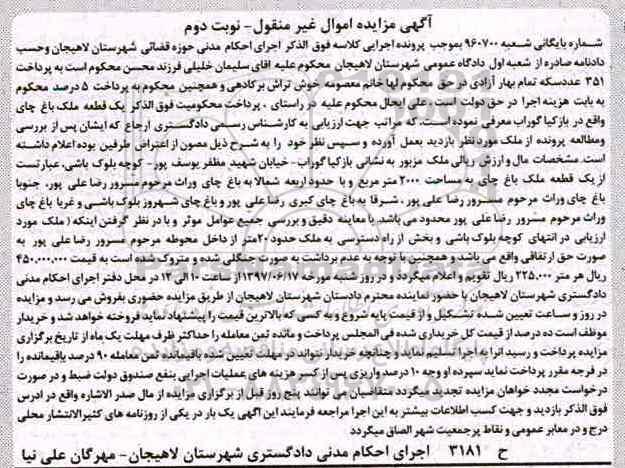 آگهی مزایده اموال غیر منقول- نوبت دوم
شماره بایگانی شعبه ۹۶۰۷۰۰ بموجب پرونده اجرایی کلاسه فوق الذکر اجرای احکام مدنی حوزه قضائی شهرستان لاهیجان وحسب
دادنامه صادره از شعبه اول دادگاه عمومی شهرستان لاهیجان محکوم علیه اقای سلیمان خلیلی فرزند محسن محکوم است به پرداخت
۳۵۱ عددسکه تمام بهار آزادی در حق محکوم لها خانم معصومه خوش تراش برکادهی و همچنین محکوم به پرداخت ۵ درصد محکوم
به بابت هزینه اجرا در حق دولت است، علی ایحال محکوم علیه در راستای ، پرداخت محکومیت فوق الذکر یک قطعه ملک باغ چای
واقع در بازکیا گوراب معرفی نموده است. که مراتب جهت ارزیابی به کارشناس رسمی دادگستری ارجاع که ایشان پس از بررسی
ومطالعه پرونده از ملک مورد نظر بازدید بعمل آورده و سپس نظر خود را به شرح ذیل مصون از اعتراض طرفین بوده اعلام داشته
است. مشخصات مال و ارزش ریالی ملک مزبور به نشانی بازکیا گوراب- خیابان شهید مظفر یوسف پور- کوچه بلوک باشی، عبارتست
از یک قطعه ملک باغ چای به مساحت ۲۰۰۰ متر مربع و با حدود اربعه شمالا به باغ چای وراث مرحوم مسرور رضا علی پور، جنوبا
باغ چای وراث مرحوم مسرور رضا علی پور ، شرقا به باغ چای کبری رضا علی پور و باغ چای شهروز بلوک باشی و غربا باغ چای
وراث مرحوم مسرور رضا علی پور محدود می باشد. با معاینه دقیق و بررسی جمیع عوامل موثر و با در نظر گرفتن اینکه ( ملک مورد
ارزیابی در انتهای کوچه بلوک باشی و بخش از راه دسترسی به ملک حدود ۲۰متر از داخل محوطه مرحوم مسرور رضا علی پور به
صورت حق ارتفاقی واقع می باشد و همچنین با توجه به عدم برداشت به صورت جنگلی شده و متروک شده است به قیمت ۴۵۰,۰۰۰,۰۰۰
ریال هر متر ۲۲۵,۰۰۰ ریال تقویم و اعلام میگردد و در روز شنبه مورخه ۱۳۹۷/۰۶/۱۷ از ساعت ۱۰ الی ۱۲ در محل دفتر اجرای احکام مدنی
دادگستری شهرستان لاهیجان با حضور نماینده محترم دادستان شهرستان لاهیجان از طریق مزایده حضوری بفروش می رسد و مزایده
در روز و ساعت تعیین شده تشکیل و از قیمت پایه شروع و به کسی که بالاترین قیمت را پیشنهاد نماید فروخته خواهد شد و خریدار
موظف است ده درصد از قیمت کل خریداری شده فی المجلس پرداخت و مانده ثمن معامله را حداکثر ظرف مهلت یک ماه از تاریخ برگزاری
مزایده پرداخت و رسید انرا به اجرا تسلیم نماید و چنانچه خریدار نتواند در مهلت تعیین شده باقیمانده ثمن معامله ۹۰ درصد باقیمانده را
در فرجه مقرر پرداخت نماید سپرده او وجه ۱۰ درصد واریزی پس از کسر هزینه های عملیات اجرایی بنفع صندوق دولت ضبط و در صورت
درخواست مجدد خواهان مزایده تجدید میگردد متقاضیان می توانند پنج روز قبل از برگزاری مزایده از مال صدر الاشاره واقع در ادرس
فوق الذکر بازدید و جهت کسب اطلاعات بیشتر به این اجرا مراجعه فرمایند این آگهی یک بار در یکی از روزنامه های کثیرالانتشار محلی
درج و در معابر عمومی و نقاط پرجمعیت شهر الصاق میگردد
ح ۳۱۸۱ اجرای احکام مدنی دادگستری شهرستان لاهیجان- مهرگان علی نیا